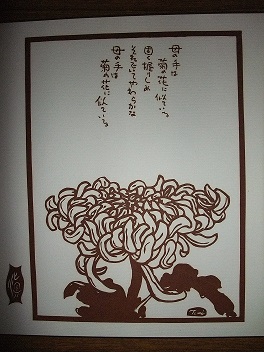 母の手は
菊の花に似ている
固く握りしめ
それでいてやわらかな
母の手は
菊の花に似ている